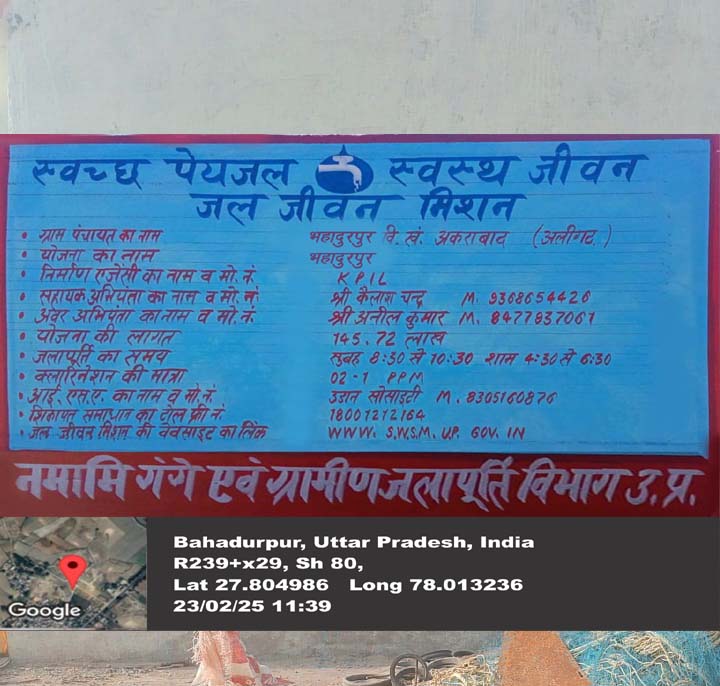 स्वच्छ पेयजल स्वस्थ जीवन
जल जीवन मिशन
• ग्राम पंचायत का नाम भहादुरपुर वि. खं. अकराबाद (अलीगढ़)
• योजना का नाम भहादुरपुर
• निर्माण एजेंसी का नाम व मो. नं. KPIL
• सहायक अभियंता का नाम व मो. नं. श्री कैलाश चन्द्र M. 9368654426
• अवर अभियंता का नाम व मो. नं. श्री अनील कुमार M. 8477837061
• योजना की लागत 145.72 लाख
• जलापूर्ति का समय सुबह 8:30 से 10:30 शाम 4:30 से 6:30
• क्लोरिनेशन की मात्रा 02-1 PPM
• आई. एस. ए. का नाम व मो. नं. उडान सोसाइटी M. 8305160876
• शिकायत समाधान का टोल फ्री नं. 18001212164
• जल जीवन मिशन की वेबसाइट का लिंक WWW. S.W.S.M. UP. GOV. IN
नमामि गंगे एवं ग्रामीण जलापूर्ति विभाग उ. प्र.
Google
Bahadurpur, Uttar Pradesh, India
R239+x29, Sh 80,
Lat 27.804986 Long 78.013236
23/02/25 11:39